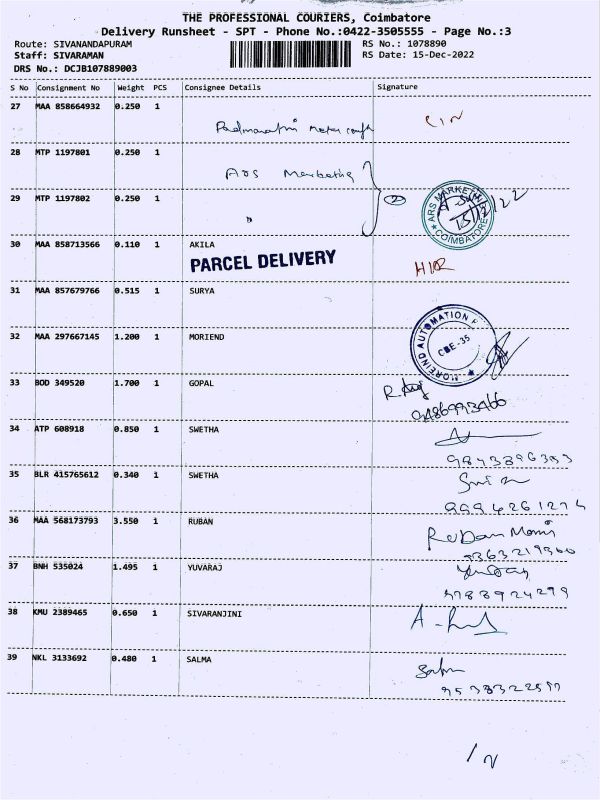 THE PROFESSIONAL COURIERS, Coimbatore
Delivery Runsheet - SPT - Phone No.:0422-3505555 - Page No.:3
Route: SIVANANDAPURAM
Staff: SIVARAMAN
DRS No.: DCJB107889003
RS No.: 1078890
RS Date: 15-Dec-2022
S No Consignment No Weight PCS Consignee Details Signature
27 MAA 858664932 0.250 1
28 MTP 1197801 0.250 1
ARS Marketing
29 MTP 1197802 0.250 1
2
ARS MARKETING
COIMBATORE
15/12/22
30 MAA 858713566 0.110 1 AKILA
PARCEL DELIVERY
31 MAA 857679766 0.515 1 SURYA
32 MAA 297667145 1.200 1 MORIEND
MOREIND AUTOMATION
CBE-35
33 BOD 349520 1.700 1 GOPAL
34 ATP 608918 0.850 1 SWETHA
35 BLR 415765612 0.340 1 SWETHA
9994261274
36 MAA 568173793 3.550 1 RUBAN
37 BNH 535024 1.495 1 YUVARAJ
9788924299
38 KMU 2389465 0.650 1 SIVARANJINI
39 NKL 3133692 0.480 1 SALMA